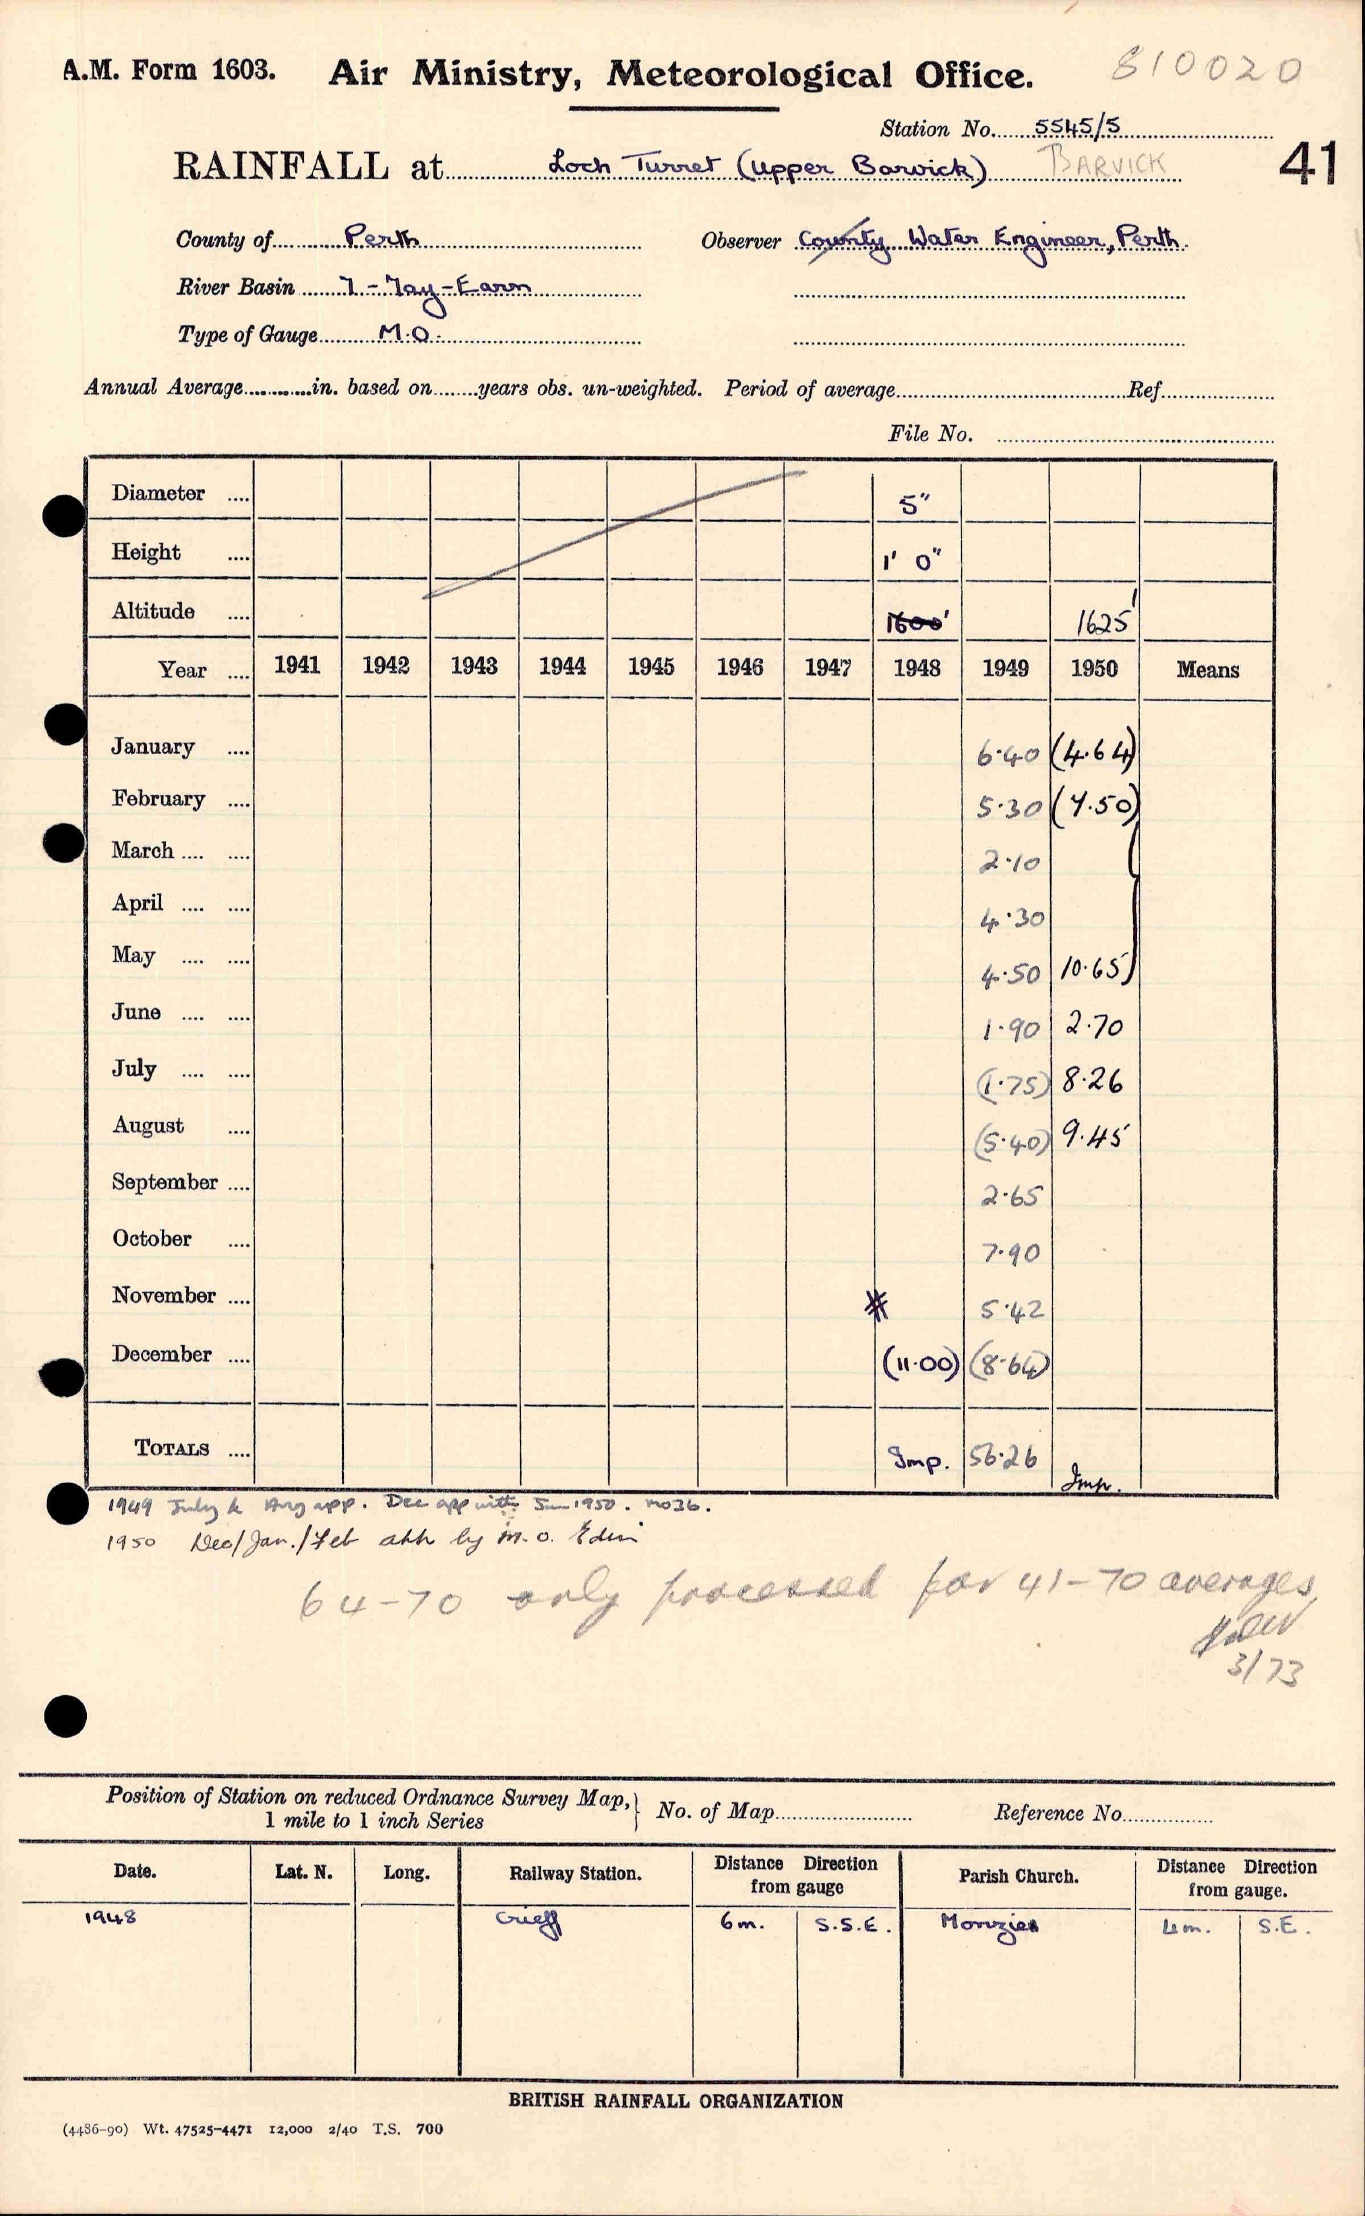 A.M. Form 1603. Air Ministry, Meteorological Office. 810020
Station No. 5545/5
RAINFALL at Loch Turret (Upper Barvick) BARVICK 41
County of Perth Observer County Water Engineer, Perth.
River Basin 7 - Tay - Earn
Type of Gauge M.O.
Annual Average in. based on years obs. un-weighted. Period of average Ref.
File No.
Diameter 5"
Height 1' 0"
Altitude 1600' 1625'
Year 1941 1942 1943 1944 1945 1946 1947 1948 1949 1950 Means
January 6·40 (4·64)
February 5·30 (7·50)
March 2·10
April 4·30
May 4·50 10·65)
June 1·90 2·70
July (1·75) 8·26
August (5·40) 9·45
September 2·65
October 7·90
November 5·42
December (11·00) (8·64)
TOTALS Imp. 56·26 Imp.
1949 July & Aug app. Dec app with Jan 1950. MO3b.
1950 Dec/Jan./Feb by M.O. Edin
64-70 only processed for 41-70 averages
3/73
Position of Station on reduced Ordnance Survey Map, 1 mile to 1 inch Series No. of Map Reference No.
Date. Lat. N. Long. Railway Station. Distance Direction from gauge Parish Church. Distance Direction from gauge.
1948 Crieff 6m. S.S.E. Monzie 4m. S.E.
BRITISH RAINFALL ORGANIZATION
(4486-90) Wt. 47525-4471 12,000 2/40 T.S. 700